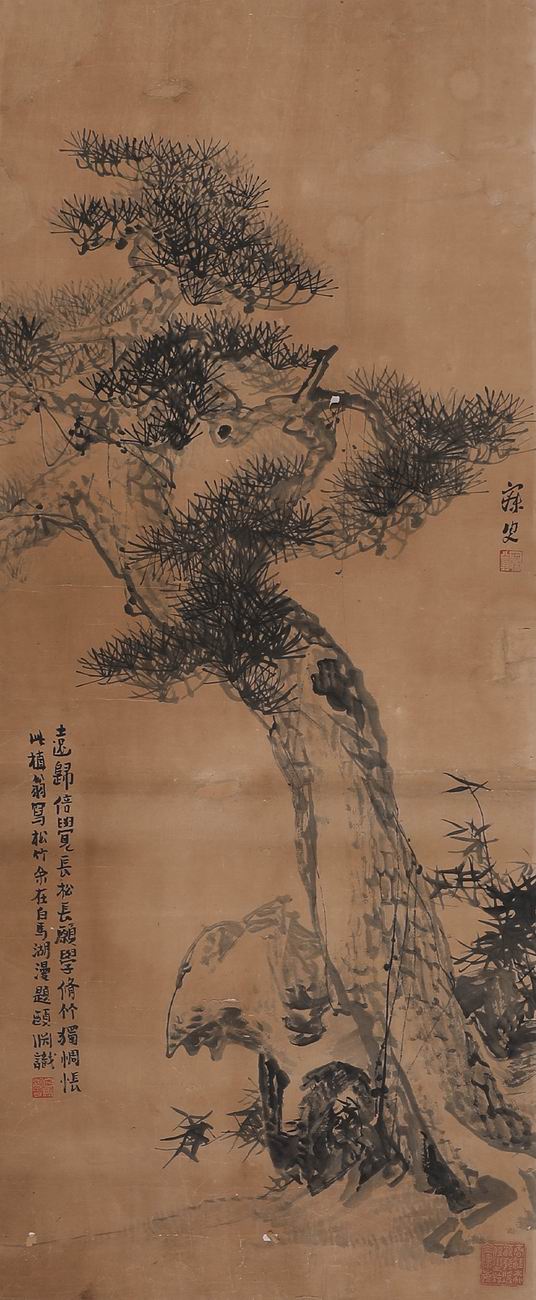 寐叟
遠歸倍覺長松長願學脩竹獨惆悵
此植翁寫松竹余在白馬湖漫題頤淵識